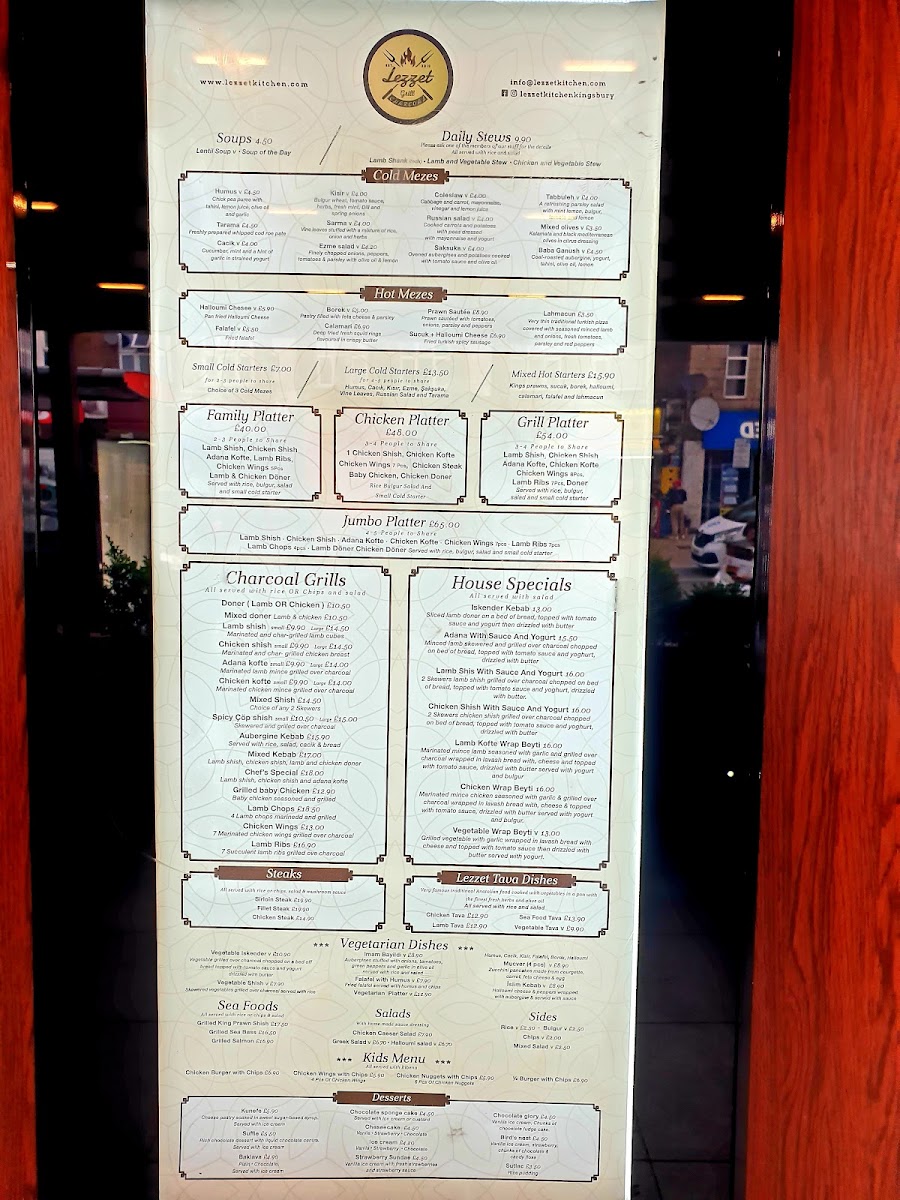 www.lezzetkitchen.com
Lezzet
Grill
info@lezzetkitchen.com
lezzetkitchenkingsbury
Soups 4.50
Lentil Soup v • Soup of the Day
Daily Stews 9.90
Please ask one of the members of our staff for the details
All served with rice and salad
Lamb Shank • Lamb and Vegetable Stew • Chicken and Vegetable Stew
Cold Mezes
Humus v £4.50
Chick pea puree with,
tahini, lemon juice, olive oil
and garlic
Tarama £4.50
Freshly prepared whipped cod roe pate
Cacik v £4.00
Cucumber, mint and a hint of
garlic in strained yogurt
Kisir v £4.00
Bulgur wheat, tomato sauce,
herbs, fresh mint, Dill and
spring onions
Sarma v £4.00
Vine leaves stuffed with a mixture of rice,
onion and herbs
Ezme salad v £4.20
Finely chopped onions, peppers,
tomatoes & parsley with olive oil & lemon
Coleslaw v £4.00
Cabbage and carrot, mayonnaise,
vinegar and lemon juice
Russian salad v £4.00
Cooked carrots and potatoes
with peas dressed
with mayonnaise and yogurt
Saksuka v £4.00
Ovened aubergines and potatoes cooked
with tomato sauce and olive oil
Tabbuleh v £4.00
A refreshing parsley salad
with mint lemon, bulgur,
and lemon
Mixed olives v £3.50
Kalamata and black mediterranean
olives in citrus dressing
Baba Ganush v £4.50
Coal-roasted aubergine, yogurt,
tahini, olive oil, lemon
Hot Mezes
Halloumi Cheese v £5.90
Pan fried Halloumi Cheese
Falafel v £5.50
Fried falafel
Borek v £5.00
Pastry filled with feta cheese & parsley
Calamari £6.90
Deep fried fresh squid rings
flavoured in crispy butter
Prawn Sautée £8.90
Prawn sautéed with tomatoes,
onions, parsley and peppers
Sucuk + Halloumi Cheese £6.90
Fried turkish spicy sausage
Lahmacun £3.50
Very thin traditional turkish pizza
covered with seasoned minced lamb
and onions, fresh tomatoes,
parsley and red peppers
Small Cold Starters £7.00
for 2-3 people to share
Choice of 3 Cold Mezes
Large Cold Starters £13.50
for 4-5 people to share
Humus, Cacik, Kisir, Ezme, Şakşuka,
Vine Leaves, Russian Salad and Tarama
Mixed Hot Starters £15.90
Kings prawns, sucuk, borek, halloumi,
calamari, falafel and lahmacun
Family Platter
£40.00
2-3 People to Share
Lamb Shish, Chicken Shish
Adana Kofte, Lamb Ribs,
Chicken Wings 5Pcs
Lamb & Chicken Döner
Served with rice, bulgur, salad
and small cold starter
Chicken Platter
£48.00
3-4 People to Share
1 Chicken Shish, Chicken Kofte
Chicken Wings 7 Pcs, Chicken Steak
Baby Chicken, Chicken Doner
Rice Bulgur Salad And
Small Cold Starter
Grill Platter
£54.00
3-4 People to Share
Lamb Shish, Chicken Shish
Adana Kofte, Chicken Kofte
Chicken Wings 8Pcs,
Lamb Ribs 7Pcs, Doner
Served with rice, bulgur,
salad and small cold starter
Jumbo Platter £65.00
4-5 People to Share
Lamb Shish • Chicken Shish • Adana Kofte • Chicken Kofte • Chicken Wings 7pcs • Lamb Ribs 7pcs
Lamb Chops 4pcs • Lamb Döner Chicken Döner Served with rice, bulgur, salad and small cold starter
Charcoal Grills
All served with rice OR Chips and salad
Doner ( Lamb OR Chicken ) £10.50
Mixed doner Lamb & chicken £10.50
Lamb shish small £9.90 Large £14.50
Marinated and char-grilled lamb cubes
Chicken shish small £9.90 Large £14.50
Marinated and char- grilled chicken breast
Adana kofte small £9.90 Large £14.00
Marinated lamb mince grilled over charcoal
Chicken kofte small £9.90 Large £14.00
Marinated chicken mince grilled over charcoal
Mixed Shish £14.50
Choice of any 2 Skewers
Spicy Çöp shish small £10.50 Large £15.00
Skewered and grilled over charcoal
Aubergine Kebab £15.90
Served with rice, salad, cacik & bread
Mixed Kebab £17.00
Lamb shish, chicken shish, lamb and chicken doner
Chef's Special £18.00
Lamb shish, chicken shish and adana kofte
Grilled baby Chicken £12.90
Baby chicken seasoned and grilled
Lamb Chops £18.50
4 Lamb chops marinedd and grilled
Chicken Wings £13.00
7 Marinated chicken wings grilled over charcoal
Lamb Ribs £16.90
7 Succulent lamb ribs grilled ove charcoal
House Specials
All served with salad
Iskender Kebab 13.00
Sliced lamb doner on a bed of bread, topped with tomato
sauce and yogurt then drizzled with butter
Adana With Sauce And Yogurt 15.50
Minced lamb skewered and grilled over charcoal chopped
on bed of bread, topped with tomato sauce and yoghurt,
drizzled with butter
Lamb Shis With Sauce And Yogurt 16.00
2 Skewers lamb shish grilled over charcoal chopped on bed
of bread, topped with tomato sauce and yoghurt, drizzled
with butter.
Chicken Shish With Sauce And Yogurt 16.00
2 Skewers chicken shish grilled over charcoal chopped
on bed of bread, topped with tomato sauce and yoghurt,
drizzled with butter
Lamb Kofte Wrap Beyti 16.00
Marinated mince lamb seasoned with garlic and grilled over
charcoal wrapped in lavash bread with, cheese and topped
with tomato sauce, drizzled with butter served with yogurt
and bulgur
Chicken Wrap Beyti 16.00
Marinated mince chicken seasoned with garlic & grilled over
charcoal wrapped in lavash bread with, cheese & topped
with tomato sauce, drizzled with butter served with yogurt
and bulgur.
Vegetable Wrap Beyti v 13.00
Grilled vegetable with garlic wrapped in lavash bread with
cheese and topped with tomato sauce then drizzled with
butter served with yogurt.
Steaks
All served with rice or chips, salad & mushroom sauce
Sirloin Steak £19.90
Fillet Steak £19.90
Chicken Steak £14.90
Lezzet Tava Dishes
Very famous traditional Anatolian food cooked with vegetables in a pan with
the finest fresh herbs and olive oil
All served with rice and salad
Chicken Tava £12.90
Lamb Tava £12.90
Sea Food Tava £13.90
Vegetable Tava V £9.90
*** Vegetarian Dishes ***
Vegetable Iskender v £10.90
Vegetable grilled over charcoal chopped on a bed off
bread topped with tomato sauce and yogurt
drizzled with butter
Vegetable Shish v £7.90
Skewered vegetables grilled over charcoal served with rice
Imam Bayildi v £8.90
Aubergines stuffed with onions, tomatoes,
green peppers and garlic in olive oil
served with rice and salad
Falafel with Humus v £7.90
Fried falafel served with humus and chips
Vegetarian Platter v £12.90
Humus, Cacik, Kisir, Falafel, Borek, Halloumi
Mucver (4 pcs) v £8.90
Zucchini pancakes made from courgette,
carrot, feta cheese & egg
Islim Kebab v £8.90
Halloumi cheese & peppers wrapped
with aubergine & served with sauce
Sea Foods
All served with rice or chips & salad
Grilled King Prawn Shish £17.50
Grilled Sea Bass £16.50
Grilled Salmon £16.90
Salads
with home made sauce dressing
Chicken Caesar Salad £7.90
Greek Salad v £6.70 • Halloumi salad v £6.70
Sides
Rice v £2.50 • Bulgur v £2.50
Chips v £2.00
Mixed Salad v £2.50
*** Kids Menu ***
Chicken Burger with Chips £6.90
Chicken Wings with Chips £5.90
4 Pcs Of Chicken Wings
Chicken Nuggets with Chips £5.90
6 Pcs Of Chicken Nuggets
¼ Burger with Chips £6.90
Desserts
Kunefe £5.90
Cheese pastry soaked in sweet sugar-based syrup.
Served with ice cream
Sufle £5.50
Rich chocolate dessert with liquid chocolate centre.
Served with ice cream
Baklava £4.90
Plain • Chocolate,
Served with ice cream
Chocolate sponge cake £4.50
Served with ice cream or custard
Cheesecake £4.50
Vanilla • Strawberry • Chocolate
Ice cream £4.20
Vanilla • Strawberry • Chocolate
Strawberry Sundae £4.50
Vanilla ice cream with fresh strawberries
and strawberry sauce
Chocolate glory £4.50
Vanilla ice cream, Chunks of
chocolate fudge cake,
Bird's nest £4.50
Vanilla ice cream, strawberry,
chunks of chocolate &
candy floss
Sutlac £3.50
rice pudding